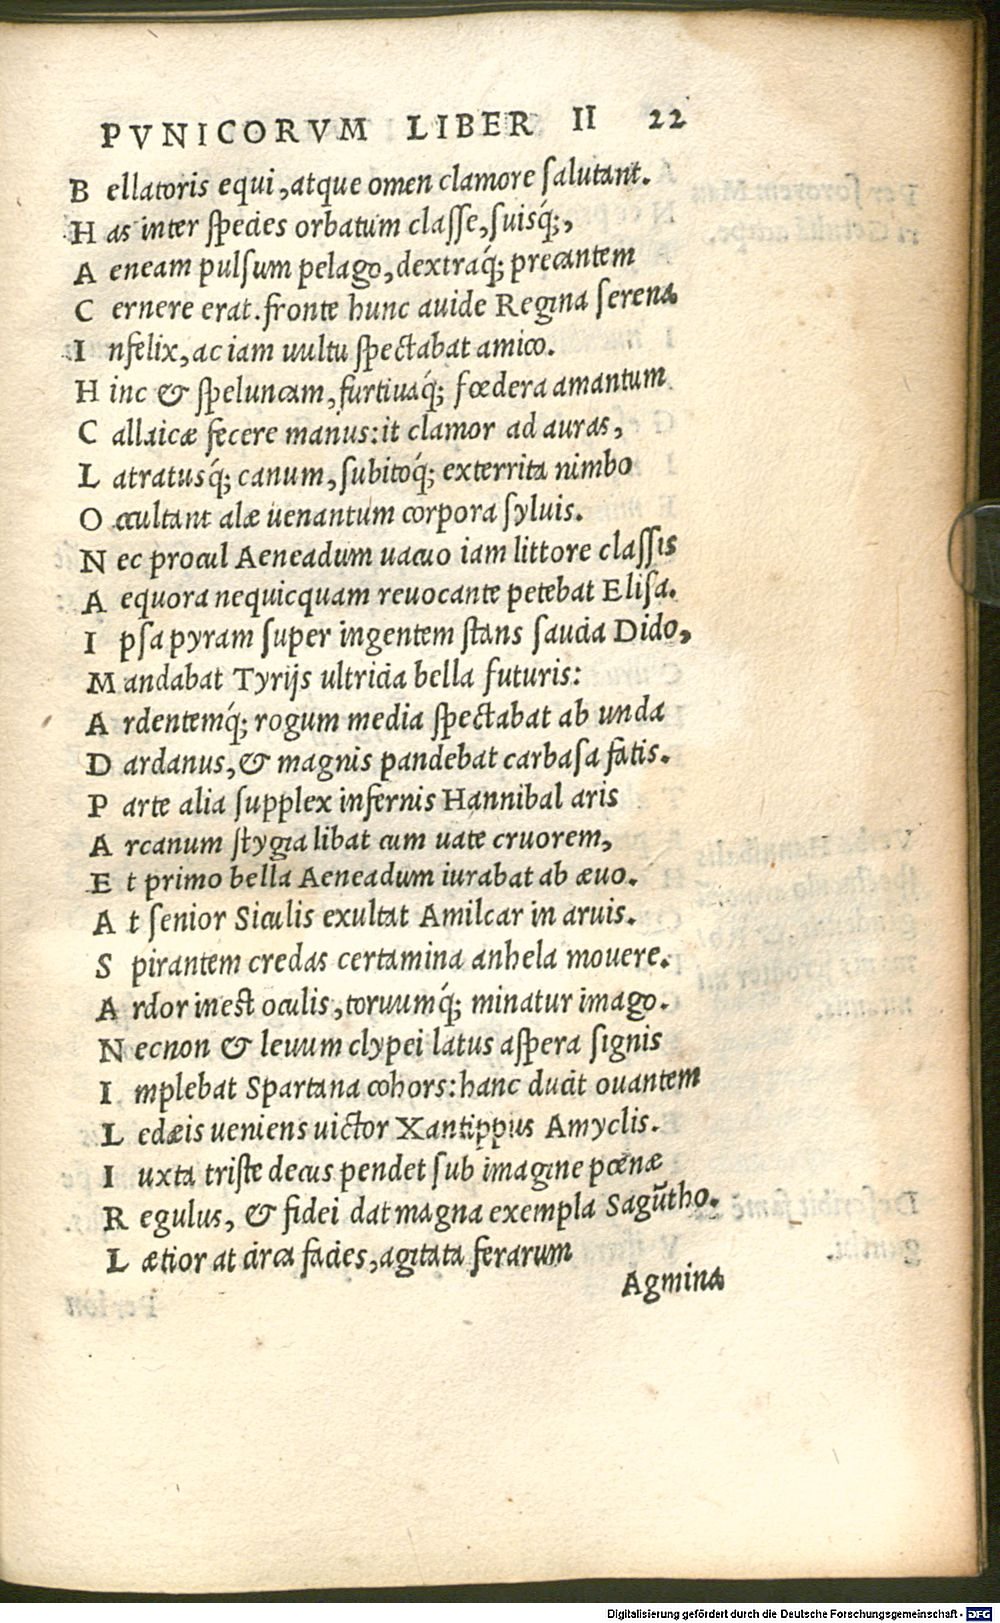 PVNICORVM LIBER II 22
B ellatoris equi, atque omen clamore salutant.
H as inter species orbatum classe, suisq́;,
A eneam pulsum pelago, dextraq́; precantem
C ernere erat. fronte hunc auide Regina serena
I nfelix, ac iam uultu spectabat amico.
H inc & speluncam, furtiuaq́; fœdera amantum
C allaicæ fecere manus: it clamor ad auras,
L atratusq́; canum, subitoq́; exterrita nimbo
O ccultant alæ uenantum corpora syluis.
N ec procul Aeneadum uacuo iam littore classis
A equora nequicquam reuocante petebat Elisa.
I psa pyram super ingentem stans saucia Dido,
M andabat Tyrijs ultricia bella futuris:
A rdentemq́; rogum media spectabat ab unda
D ardanus, & magnis pandebat carbasa fatis.
P arte alia supplex infernis Hannibal aris
A rcanum stygia libat cum uate cruorem,
E t primo bella Aeneadum iurabat ab æuo.
A t senior Siculis exultat Amilcar in aruis.
S pirantem credas certamina anhela mouere.
A rdor inest oculis, toruumq́; minatur imago.
N ecnon & leuum clypei latus aspera signis
I mplebat Spartana cohors: hanc ducit ouantem
L edæis ueniens uictor Xantippus Amyclis.
I uxta triste decus pendet sub imagine pœnæ
R egulus, & fidei dat magna exempla Sagūtho.
L ætior at circa facies, agitata ferarum
Agmina
Digitalisierung gefördert durch die Deutsche Forschungsgemeinschaft - DFG